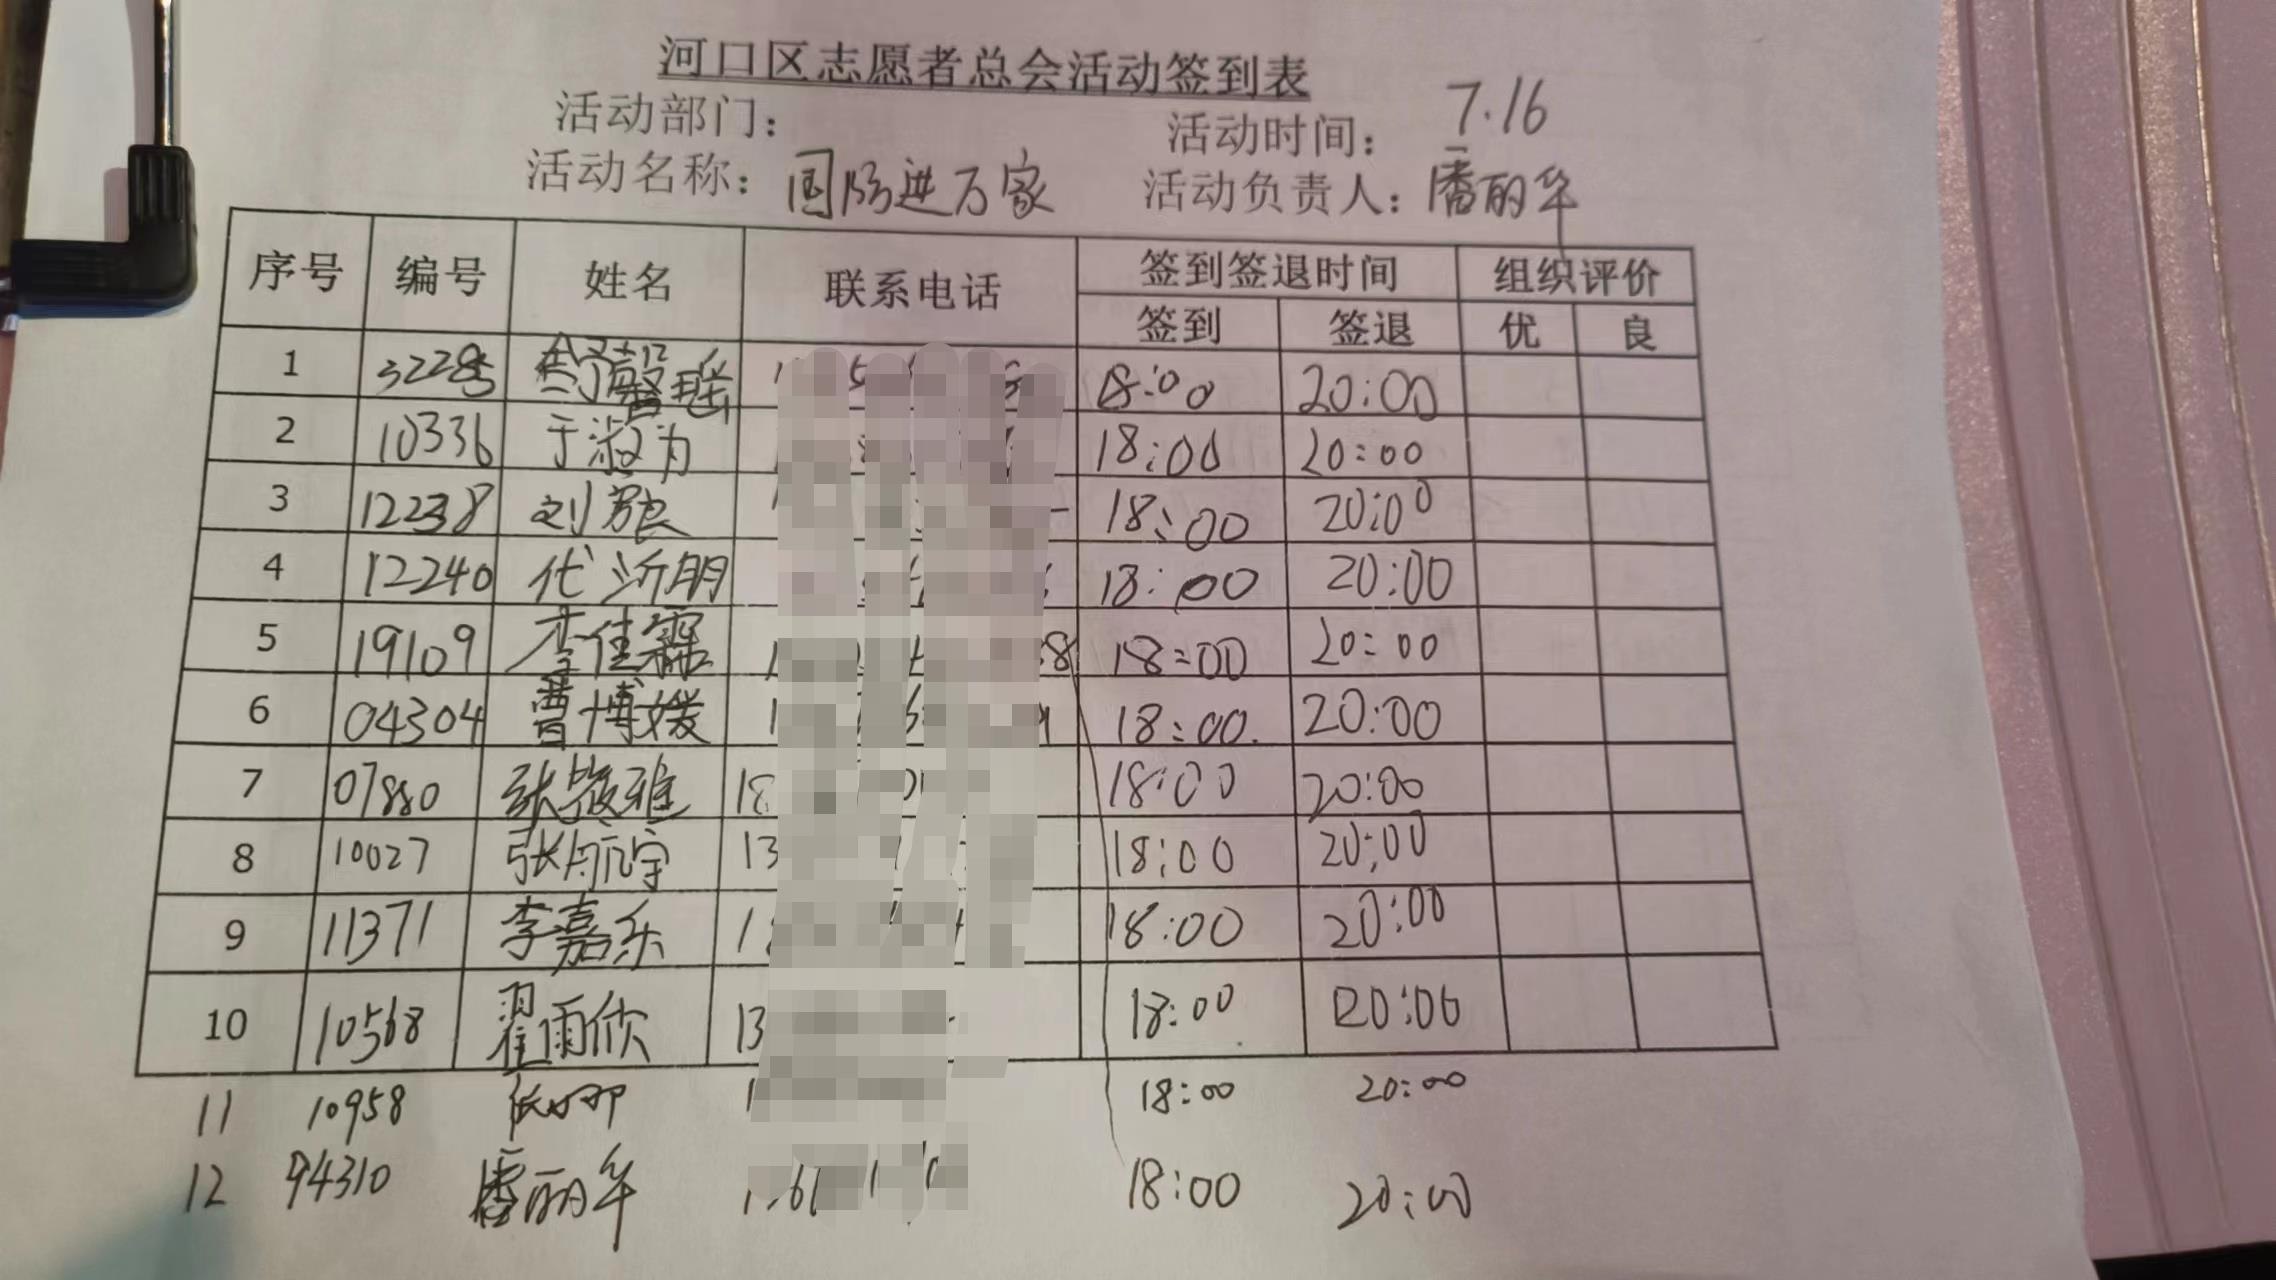 河口区志愿者总会活动签到表
活动部门： 活动时间： 7.16
活动名称：国际进万家 活动负责人：潘丽华
序号 编号 姓名 联系电话 签到签退时间 组织评价
签到 签退 优 良
1 18:00 20:00
2 10336 于淑为 18:00 20:00
3 12238 刘 18:00 20:00
4 12240 代沂朋 18:00 20:00
5 19109 李佳霖 18:00 20:00
6 04304 曹博媛 18:00. 20:00
7 07880 张 雅 18 18:00 20:00
8 10027 张航宇 13 18:00 20:00
9 11371 李嘉乐 1 18:00 20:00
10 10568 翟雨欣 13 18:00 20:00
11 10958 18:00 20:00
12 94310 潘丽华 18:00 20:00